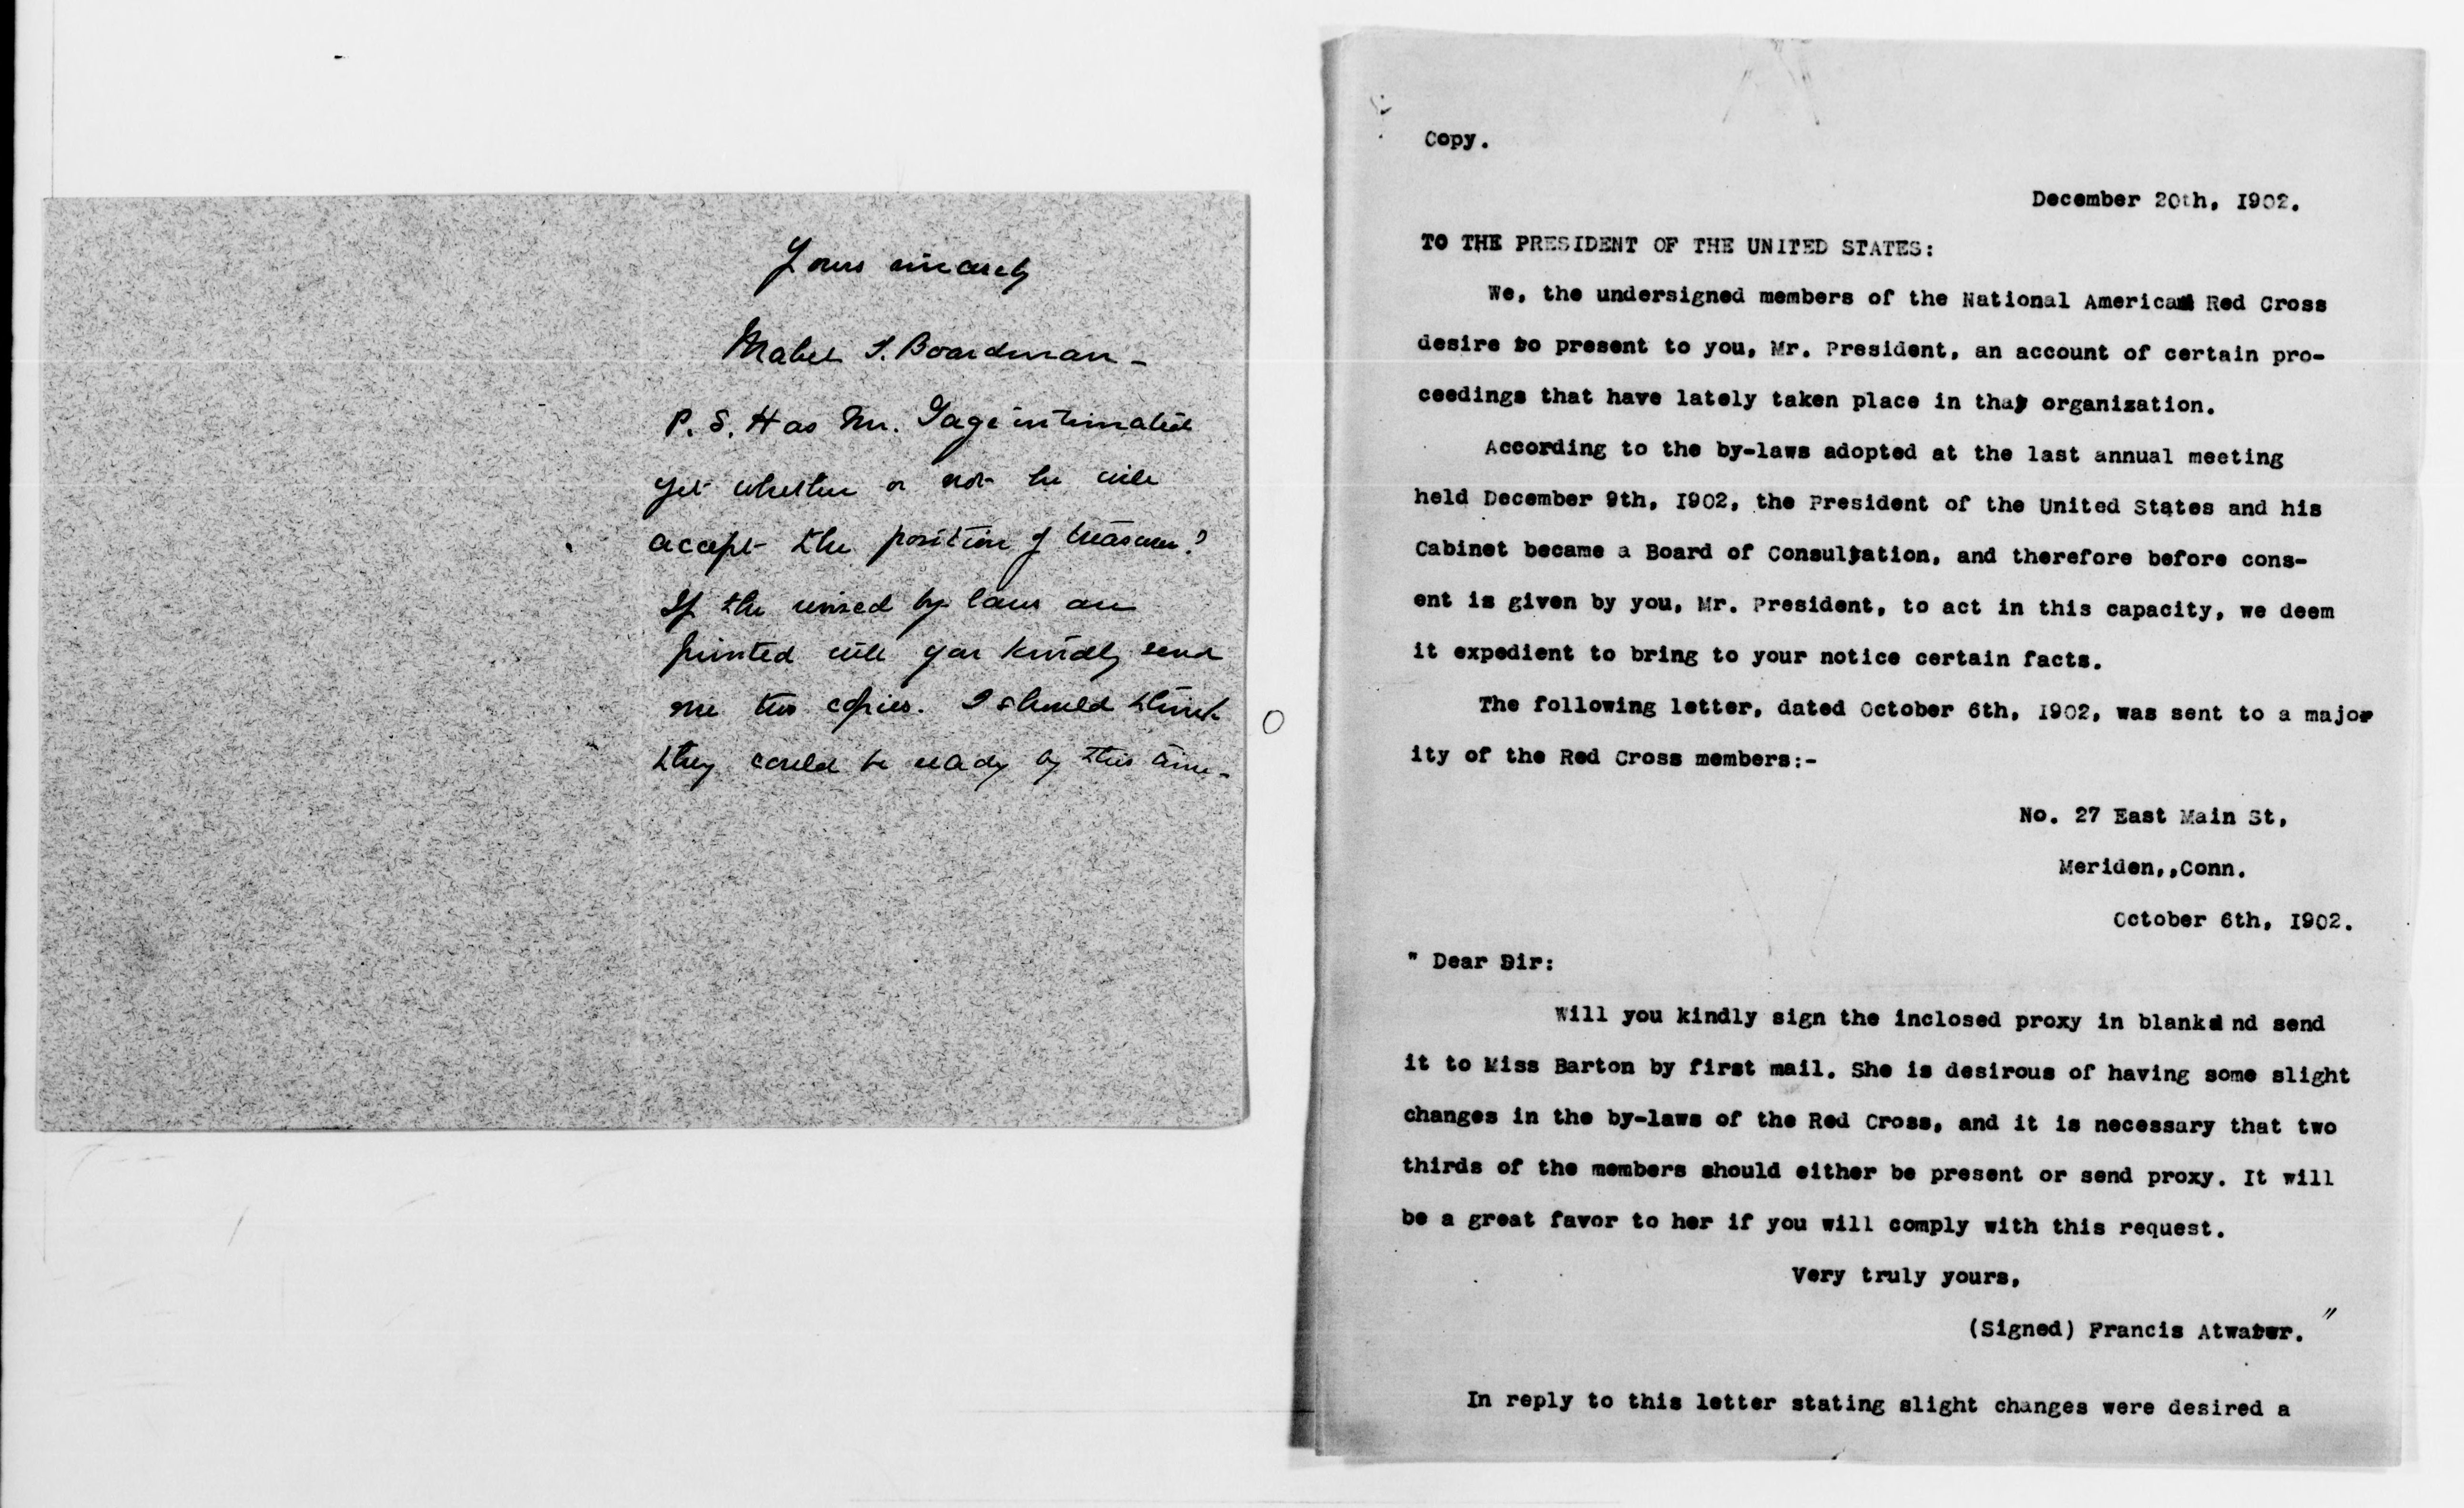 Yours sincerely
Mabel T. Boardman –
P. S. Has Mr. Gage intimated
yet whether or not he will
accept the position of treasurer?
If the revised by laws are
printed will you kindly send
me two copies. I should think
they could be ready by this time –
Copy.
December 20th, I902.
TO THE PRESIDENT OF THE UNITED STATES:
We, the undersigned members of the National American Red Cross
desire to present to you, Mr. President, an account of certain pro-
ceedings that have lately taken place in that organization.
According to the by-laws adopted at the last annual meeting
held December 9th, I902, the President of the United States and his
Cabinet became a Board of Consultation, and therefore before cons-
ent is given by you, Mr. President, to act in this capacity, we deem
it expedient to bring to your notice certain facts.
The following letter, dated October 6th, I902, was sent to a major
ity of the Red Cross members:-
No. 27 East Main St,
Meriden,,Conn.
October 6th, I902.
" Dear Sir:
Will you kindly sign the inclosed proxy in blank and send
it to Miss Barton by first mail. She is desirous of having some slight
changes in the by-laws of the Red Cross, and it is necessary that two
thirds of the members should either be present or send proxy. It will
be a great favor to her if you will comply with this request.
Very truly yours,
(Signed) Francis Atwater. "
In reply to this letter stating slight changes were desired a